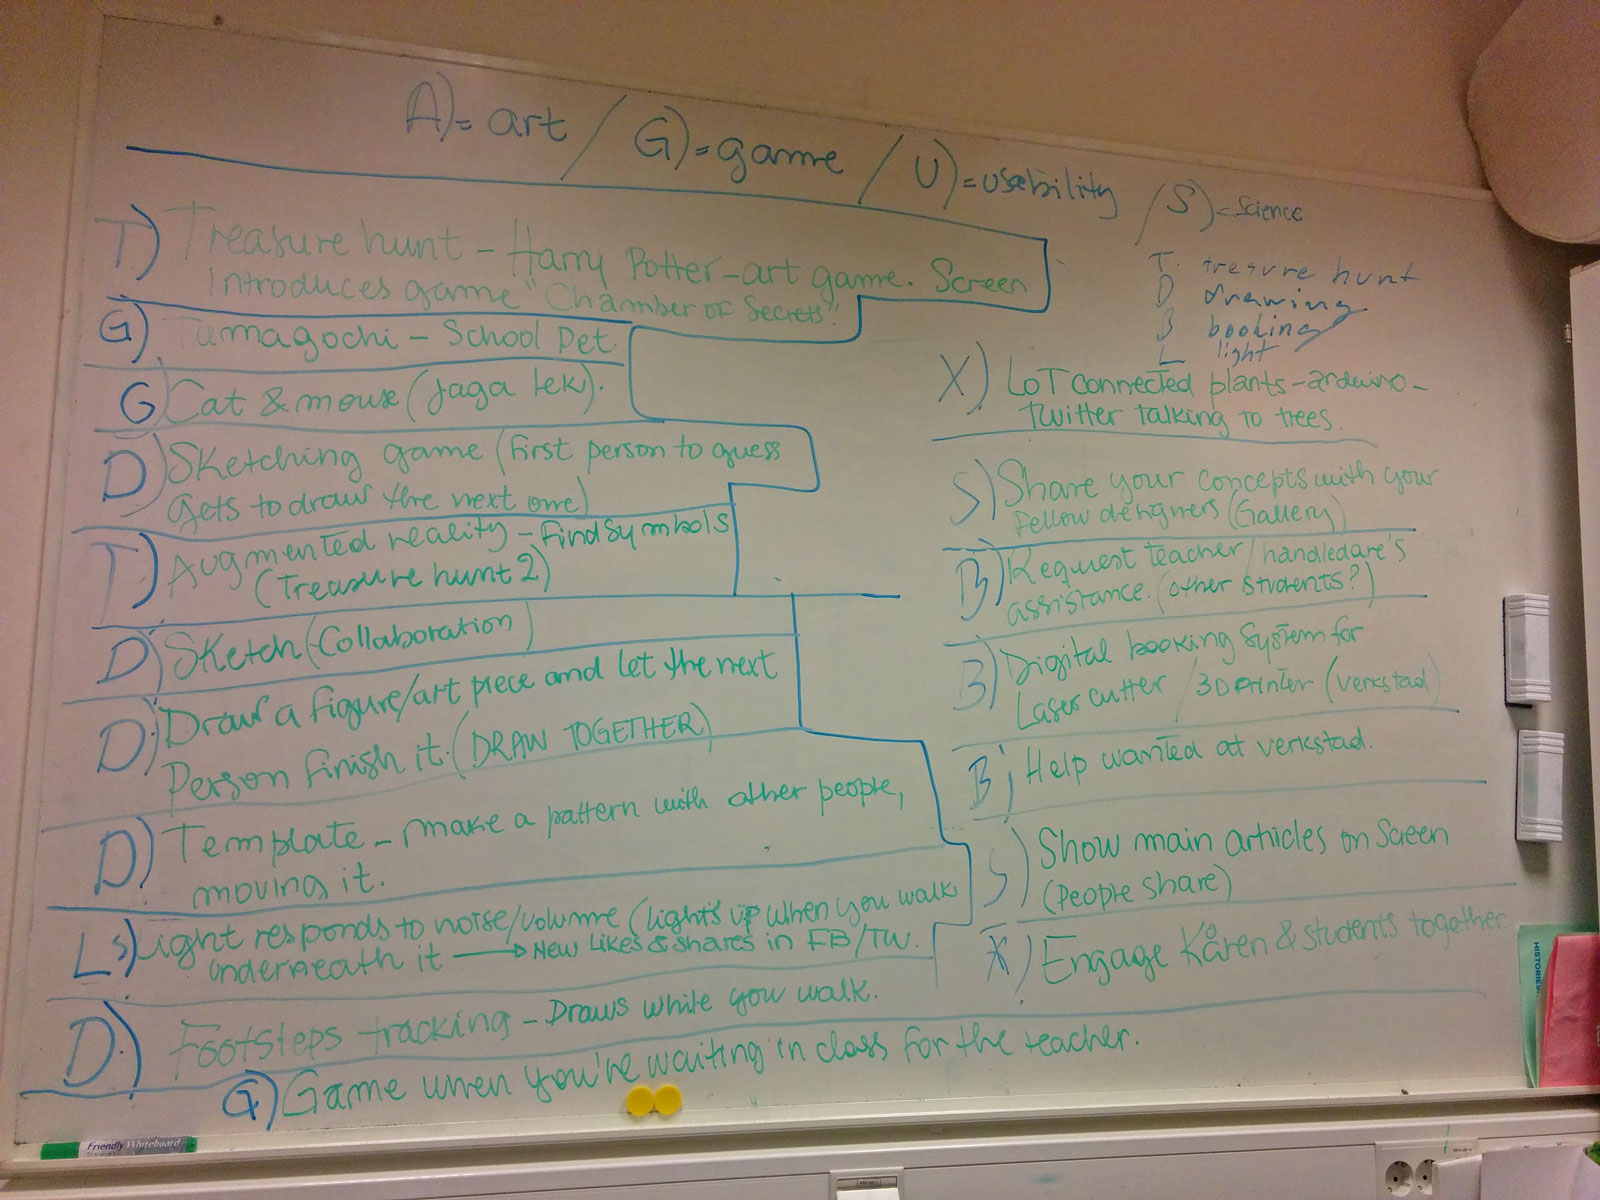 A) = art / G) = game / U) = usability / S) = Science
T) Treasure hunt - Harry Potter - art game. Screen
Introduces game "Chamber of Secrets"
G) Tumagochi - School Pet.
G) Cat & mouse (jaga lek).
D) Sketching game (First person to guess
gets to draw the next one)
T) Augmented reality - Find symbols
(Treasure hunt 2)
D) Sketch (Collaboration)
D) Draw a figure/art piece and let the next
Person finish it. (DRAW TOGETHER)
D) Template - make a pattern with other people,
moving it.
L S) Light responds to noise/volume (lights up when you walk
underneath it → New Likes & shares in FB/TW.
D.) Footsteps tracking - Draws while you walk.
G) Game when you're waiting in class for the teacher.
T. tresure hunt
D drawing
B booking
L light
X) LoT connected plants - arduino -
Twitter talking to trees.
S) Share your concepts with your
Fellow designers (Gallery)
B) Request teacher/handledare's
assistance. (other students?)
B) Digital booking system for
Laser cutter / 3D printer (verkstad)
B) Help wanted at verkstad.
S) Show main articles on Screen
(People share)
X) Engage Kåren & students together.
HISTORIES:
Friendly Whiteboard